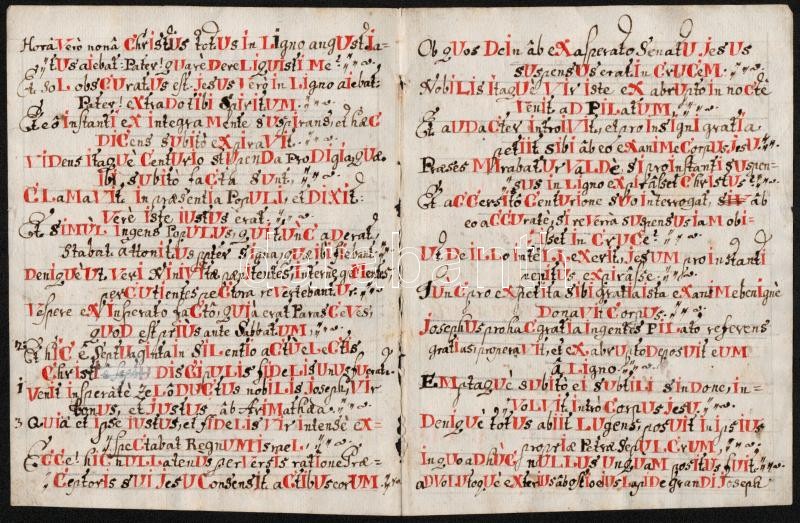 Horâ verò nonâ Christus totus in Ligno angustia-
tus aiebat: Pater! quare Dereliquisti me
Et sol obscuratus est. Jesus verò in Ligno aiebat:
Pater! extrado tibi Spiritum.
Et eô instanti ex integra mente suspirans, et hæc
Dicens subitò expiravit.
Videns itaque Centurio stupenda Prodigia, quæ
ibi subitò facta sunt,
Clamavit in præsentia Populi, et Dixit:
Vere iste iustus erat:
Et simul ingens Populus, qui tunc aderat,
stabat attonitus propter signa, quæ ibi fiebant.
Denique ut veri
percutientes pectora revertebantur.
Vespere ex insperato facto, quia erat Parasceves,
quod est prius ante Sabbatum.
Et hic è Septuaginta in silentio actu electis
Christi Discipulis fidelis unus fuerat.
1 Venit insperatè Zelô Ductus nobilis Joseph, vir
bonus, et justus âb Arimathæa.
3 Quia et ipse iustus, et fidelis vir intense ex-
spectabat Regnum Israel.
Ecce! hic nullatenus perversis ratione Præ-
ceptoris sui Jesu consensit actibus eorum.
Ob quos Dein âb exasperato Senatu Jesus
suspensus erat in Crucem.
Nobilis itaque vir iste ex abrupto in nocte
venit ad Pilatum.
Et audacter introivit, et pro insigni gratia
petiit sibi âb eo exanime Corpus Jesu.
Præses mirabatur valdè, si pro instanti suspen-
sus in Ligno expirâsset Christus
Et accersito Centurione suo interrogat, si âb
eo accurate, si revera suspensus iam obi-
isset in Cruce?
Ut de illo intellexerit, Jesum pro instanti
penitus expirâsse.
Tunc pro expetita sibi gratia ista exanime benignè
Donavit Corpus.
Josephus pro hac gratia ingentes Pilato referens
gratias properavit, et ex abrupto Deposuit eum
â Ligno.
Emptaquè subitò ei subtili sindone, in-
volvit intrò Corpus Jesu.
Deniquè totus abiit lugens, posuit in ipsius
propriæ Petræ Sepulcrum.
In quo adhuc nullus unquam positus fuit.
advolutoque exterius âb ostio eius Lapide grandi Joseph
darabanth